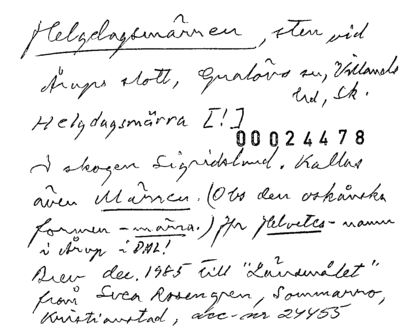 Helgdagsmärren, sten vid
Årups slott, Gualövs sn, Villands
hd, Sk.
Helgdagsmärra [!]
00024478
i skogen Sigridslund. Kallas
även Märren. (Obs den oskånska
formen -märra.) Jfr Helvetes-namn
i Årup i DAL!
Brev dec. 1985 till "Länsmålet"
från Svea Rosengren, Sommarro,
Kristianstad, acc-nr 24455